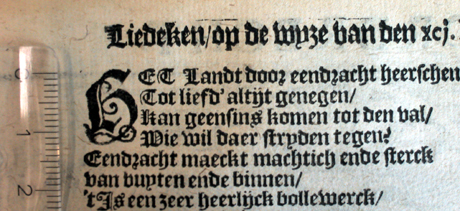 Liedeken/op de wyze van den xcj.
HET Landt door eendracht heerschen
Tot liefd' altijt genegen/
Kan geensins komen tot den val/
Wie wil daer stryden tegen?
Eendracht maeckt machtich ende sterck
van buyten ende binnen/
'tIs een zeer heerlijck bollewerck/
0
1
2